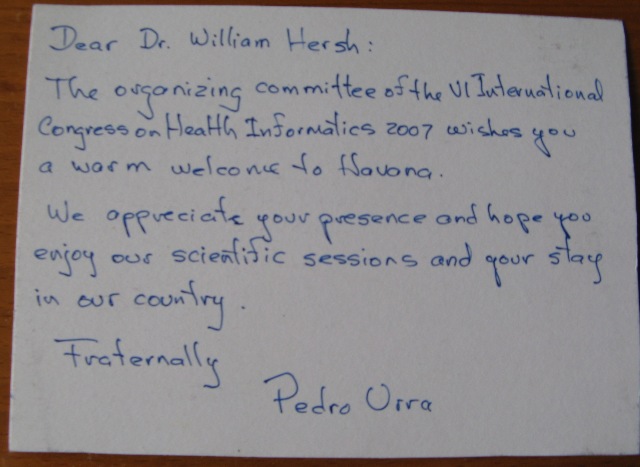 Dear Dr. William Hersh:
The organizing committee of the VI International
Congress on Health Informatics 2007 wishes you
a warm welcome to Havana.
We appreciate your presence and hope you
enjoy our scientific sessions and your stay
in our country.
Fraternally
Pedro Urra